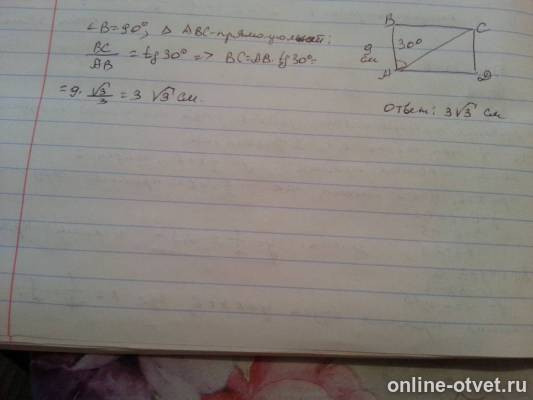 ∠B=90°, Δ ABC-прямоугольный;
BC/AB = tg30° => BC=AB·tg30°=
=9·√3/3 = 3√3 см.
B
C
9 см
30°
A
D
Ответ: 3√3 см
online-otvet.ru